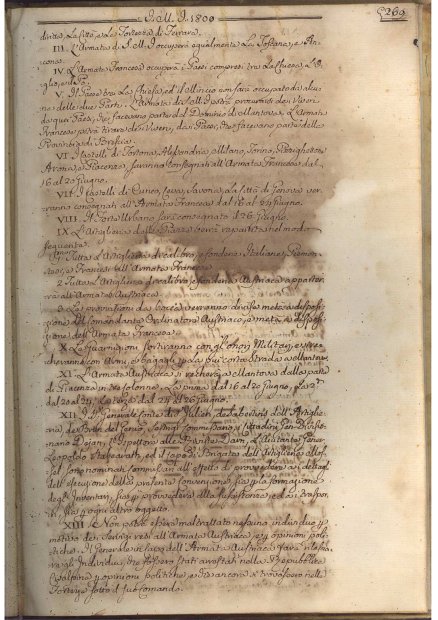 I. M. I. 1800
269
diritta, la Città, e la Fortezza di Ferrara.
III. L'Armata di S. M. I. occuperà egualmente la Toscana, e An-
cona.
IV. L'Armata Francese occuperà i Paesi compresi tra la Chiesa, l'O-
glio, e il Pò.
V. Il Paese tra la Chiesa, ed il Mincio non sarà occupato da alcu-
na delle due Parti. L'Armata di S. M. I. potrà procurarsi dei Viveri
da quei Paesi, che facevano parte del Dominio di Mantova. L'Armata
Francese potrà tirare dei Viveri, dai Paesi, che facevano parte della
Provincia di Brescia.
VI. I Castelli di Tortona, Alessandria, Milano, Torino, Pizzighettone
Arona, e Piacenza, saranno consegnati all'Armata Francese dal
16 al 20 Giugno.
VII. I Castelli di Cuneo, Ceva, Savona, la Città di Genova ver-
ranno consegnati all'Armata Francese dal 16 al 24 Giugno.
VIII. Il Forte Urbano sarà consegnato il 26 Giugno.
IX. L'Artiglieria delle Piazze verrà ripartita nel modo
seguente.
Tutta l'Artiglieria di calibro, e fonderia Italiane, Piemon-
tesi, e Francesi all'Armata Francese
2. Tutta l'Artiglieria di calibro e fonderia Austriaca apparter-
rà all'Armata Austriaca
3. Le provvisioni da bocca verranno divise metà a disposi-
zione del Comandante Austriaco, e metà a disposi-
zione dell'Armata Francese.
X. Le Guarnigioni sortiranno con gli Onori Militari, e si re-
cheranno con Armi, e bagagli per la più corta strada a Mantova.
XI. L'Armata Austriaca si recherà a Mantova dalla parte
di Piacenza in tre Colonne. La prima dal 16 al 20 Giugno, la 2.ª
dal 20 al 24, la terza dal 24 al 26 Giugno.
XII. Il Generale Conte di S. Julien, de
Dejan, l'Ispettore alle Daru, l'Aiutante Gener.
Leopoldo Stalpearath, ed il Capo di Brigata dell'Artiglieria
sel sono nominati Commissari all'effetto di provvedere ai dettagli
dell'esecuzione della presente Convenzione, sia per la formazione
degli Inventari, sia per provvedere alla sussistenza, ed ai traspor-
ti, sia per ogni altro oggetto.
XIII. Non potrà essere maltrattato nessuno individuo per
motivo dei Servigi resi all'Armata Austriaca, e per opinioni poli-
tiche. Il Generale in Capo dell'Armata Austriaca farà rilascia-
re gl'Individui, che fossero stati arrestati nella Repubblica
Cisalpina per opinioni politiche, e che ancora si trovassero nelle
Fortezze sotto il suo Comando.